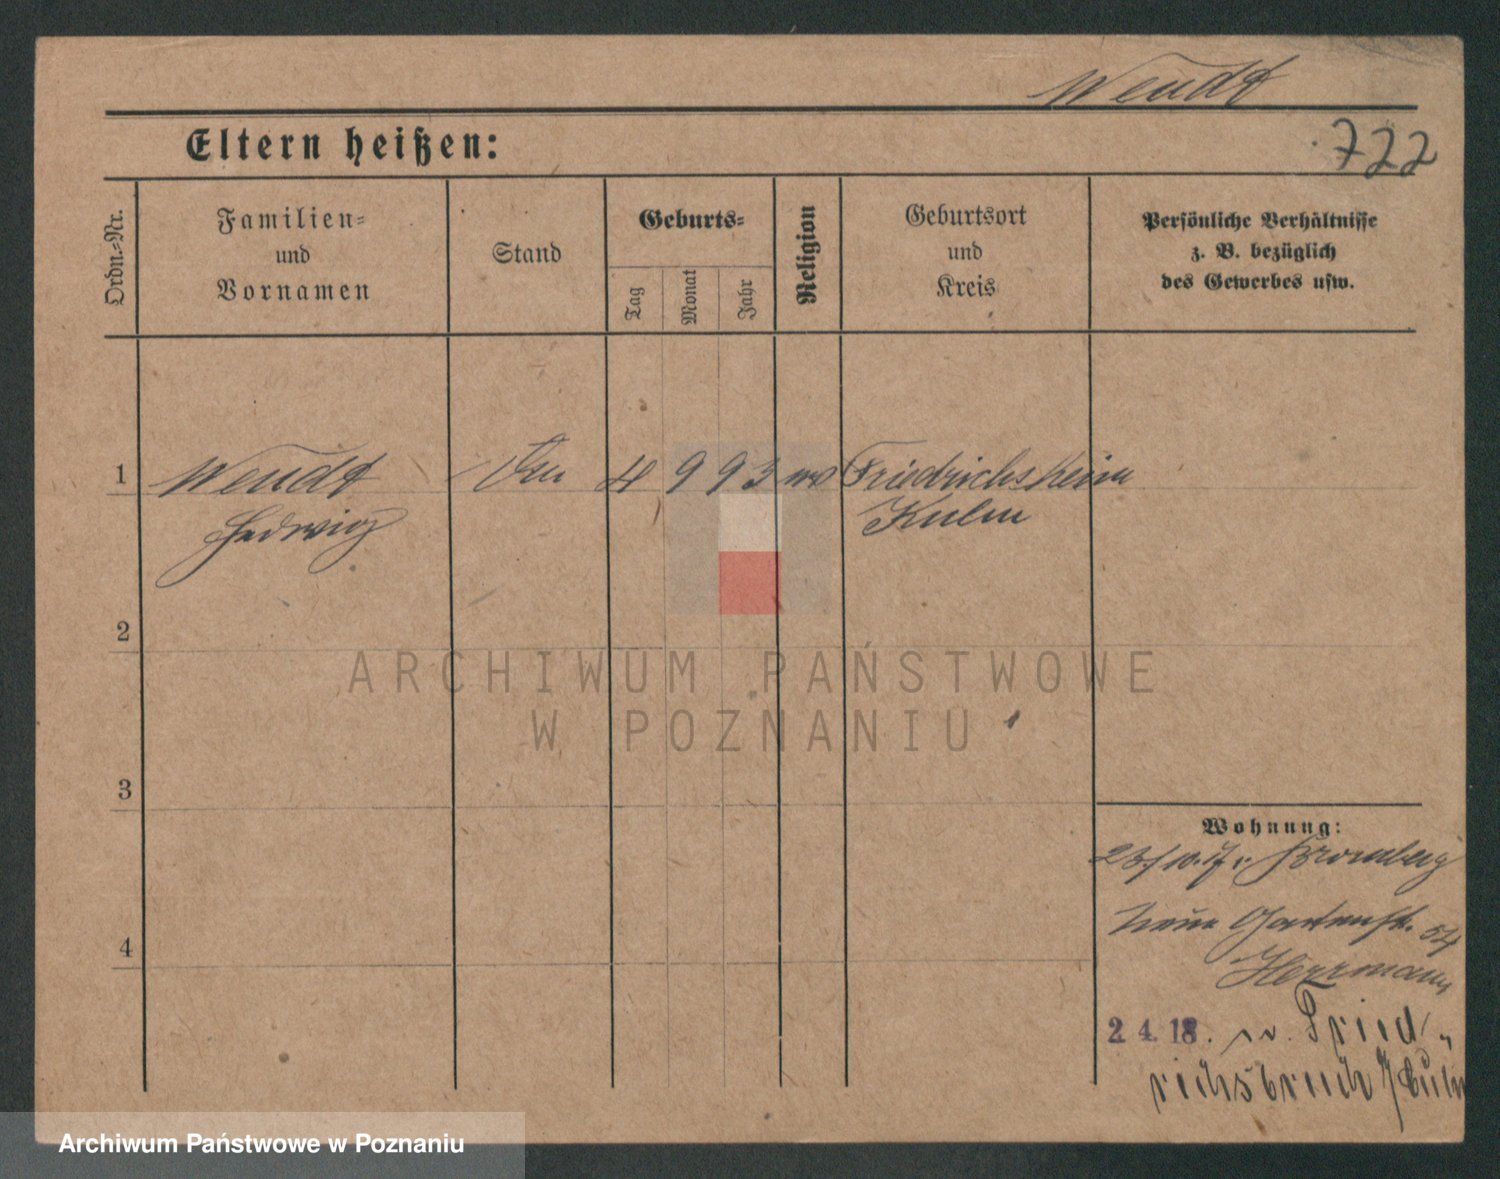 Wendt
Eltern heißen:
722
Ordn.-Nr.
Familien-
und
Vornamen
Stand
Geburts-
Tag
Monat
Jahr
Religion
Geburtsort
und
Kreis
Persönliche Verhältnisse
z. B. bezüglich
des Gewerbes usw.
1
Wendt
4
9
93
Friedrichsheim
Hedwig
Kulm
2
ARCHIWUM PAŃSTWOWE
W POZNANIU
3
Wohnung:
23/10.17 v. Bromberg
4
neue Gartenstr. 54
Herrmann
2. 4. 18. n. Fried-
richsbruch / Culm
Archiwum Państwowe w Poznaniu